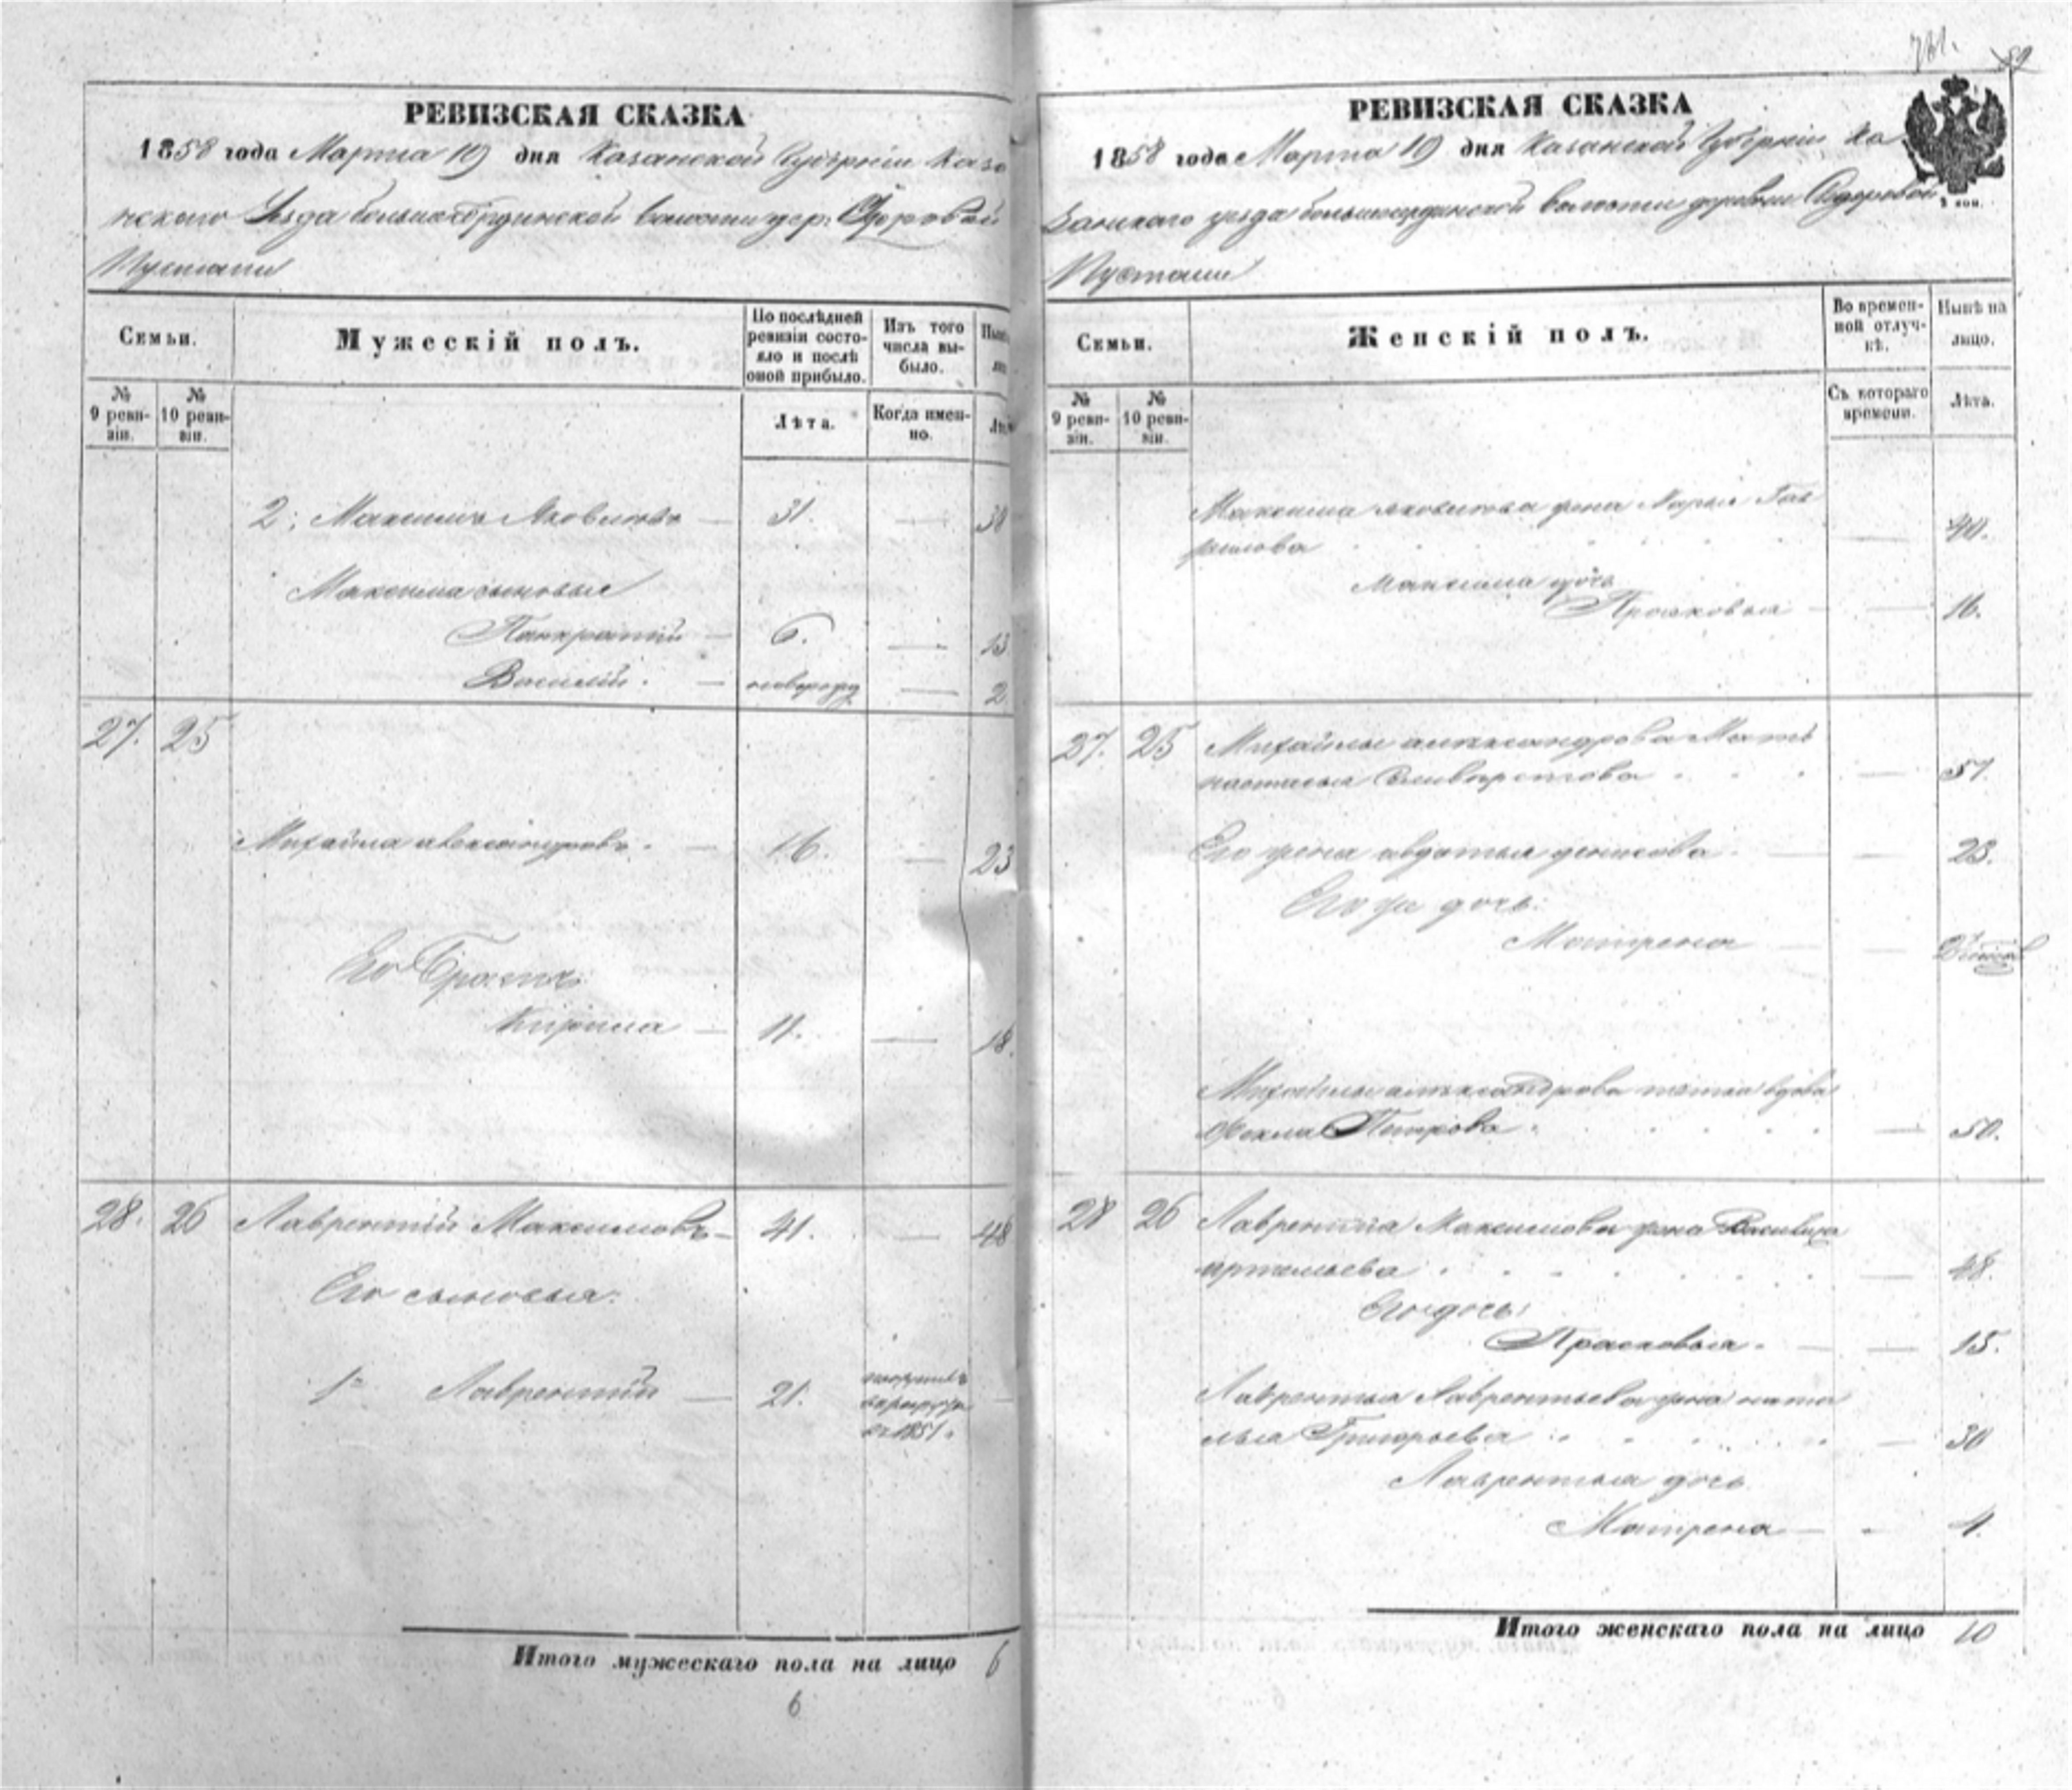 РЕВИЗСКАЯ СКАЗКА
1858 года Марта 19 дня Казанской Губерніи Каза
нского Уезда волости дер. Сидоровой
Пустоши
Семьи.
Мужескій полъ.
По послѣдней ревизіи состояло и послѣ оной прибыло.
Изъ того числа выбыло.
№ 9 ревизіи.
№ 10 ревизіи.
Лѣта.
Когда именно.
2; Максимъ Яковлевъ — 31. — 38
Максима сыновья
Панкратій — 6. — 13
Василій. — новорожд — 2
27. 25
Михайла александровъ. — 16. — 23
Его Братъ
Кирила — 11. — 18.
28. 26 Лаврентій Максимовъ — 41. — 48
Его сыновья:
1й Лаврентій — 21.
въ рекруты
въ 1851. —
Итого мужескаго пола на лицо 6
6
781.
59
РЕВИЗСКАЯ СКАЗКА
1858 года Марта 19 дня Казанской Губерніи Ка
занскаго уезда волости деревни Сидоровой
Пустоши
Семьи.
Женскій полъ.
Во временной отлучкѣ.
Нынѣ на лицо.
№ 9 ревизіи.
№ 10 ревизіи.
Съ котораго времени.
Лѣта.
Максима яковлева жена Марья Гав
рилова — 40.
Максима дочь
Прасковья — 16.
27. 25 Михайлы александрова Мать
настасья Селиверстова — 57.
Его жена авдотья денисова. — 23.
Его же дочь:
Матрена —
Михайлы александрова тетка вдова
Фекла Петрова. — 50.
28 26 Лаврентія Максимова жена Василиса
артемьева — 48.
Его дочь:
Прасковья. — 15.
Лаврентья Лаврентьева жена ната
лья Григорьева — 30
Лаврентья дочь
Матрена — 4.
Итого женскаго пола на лицо 10